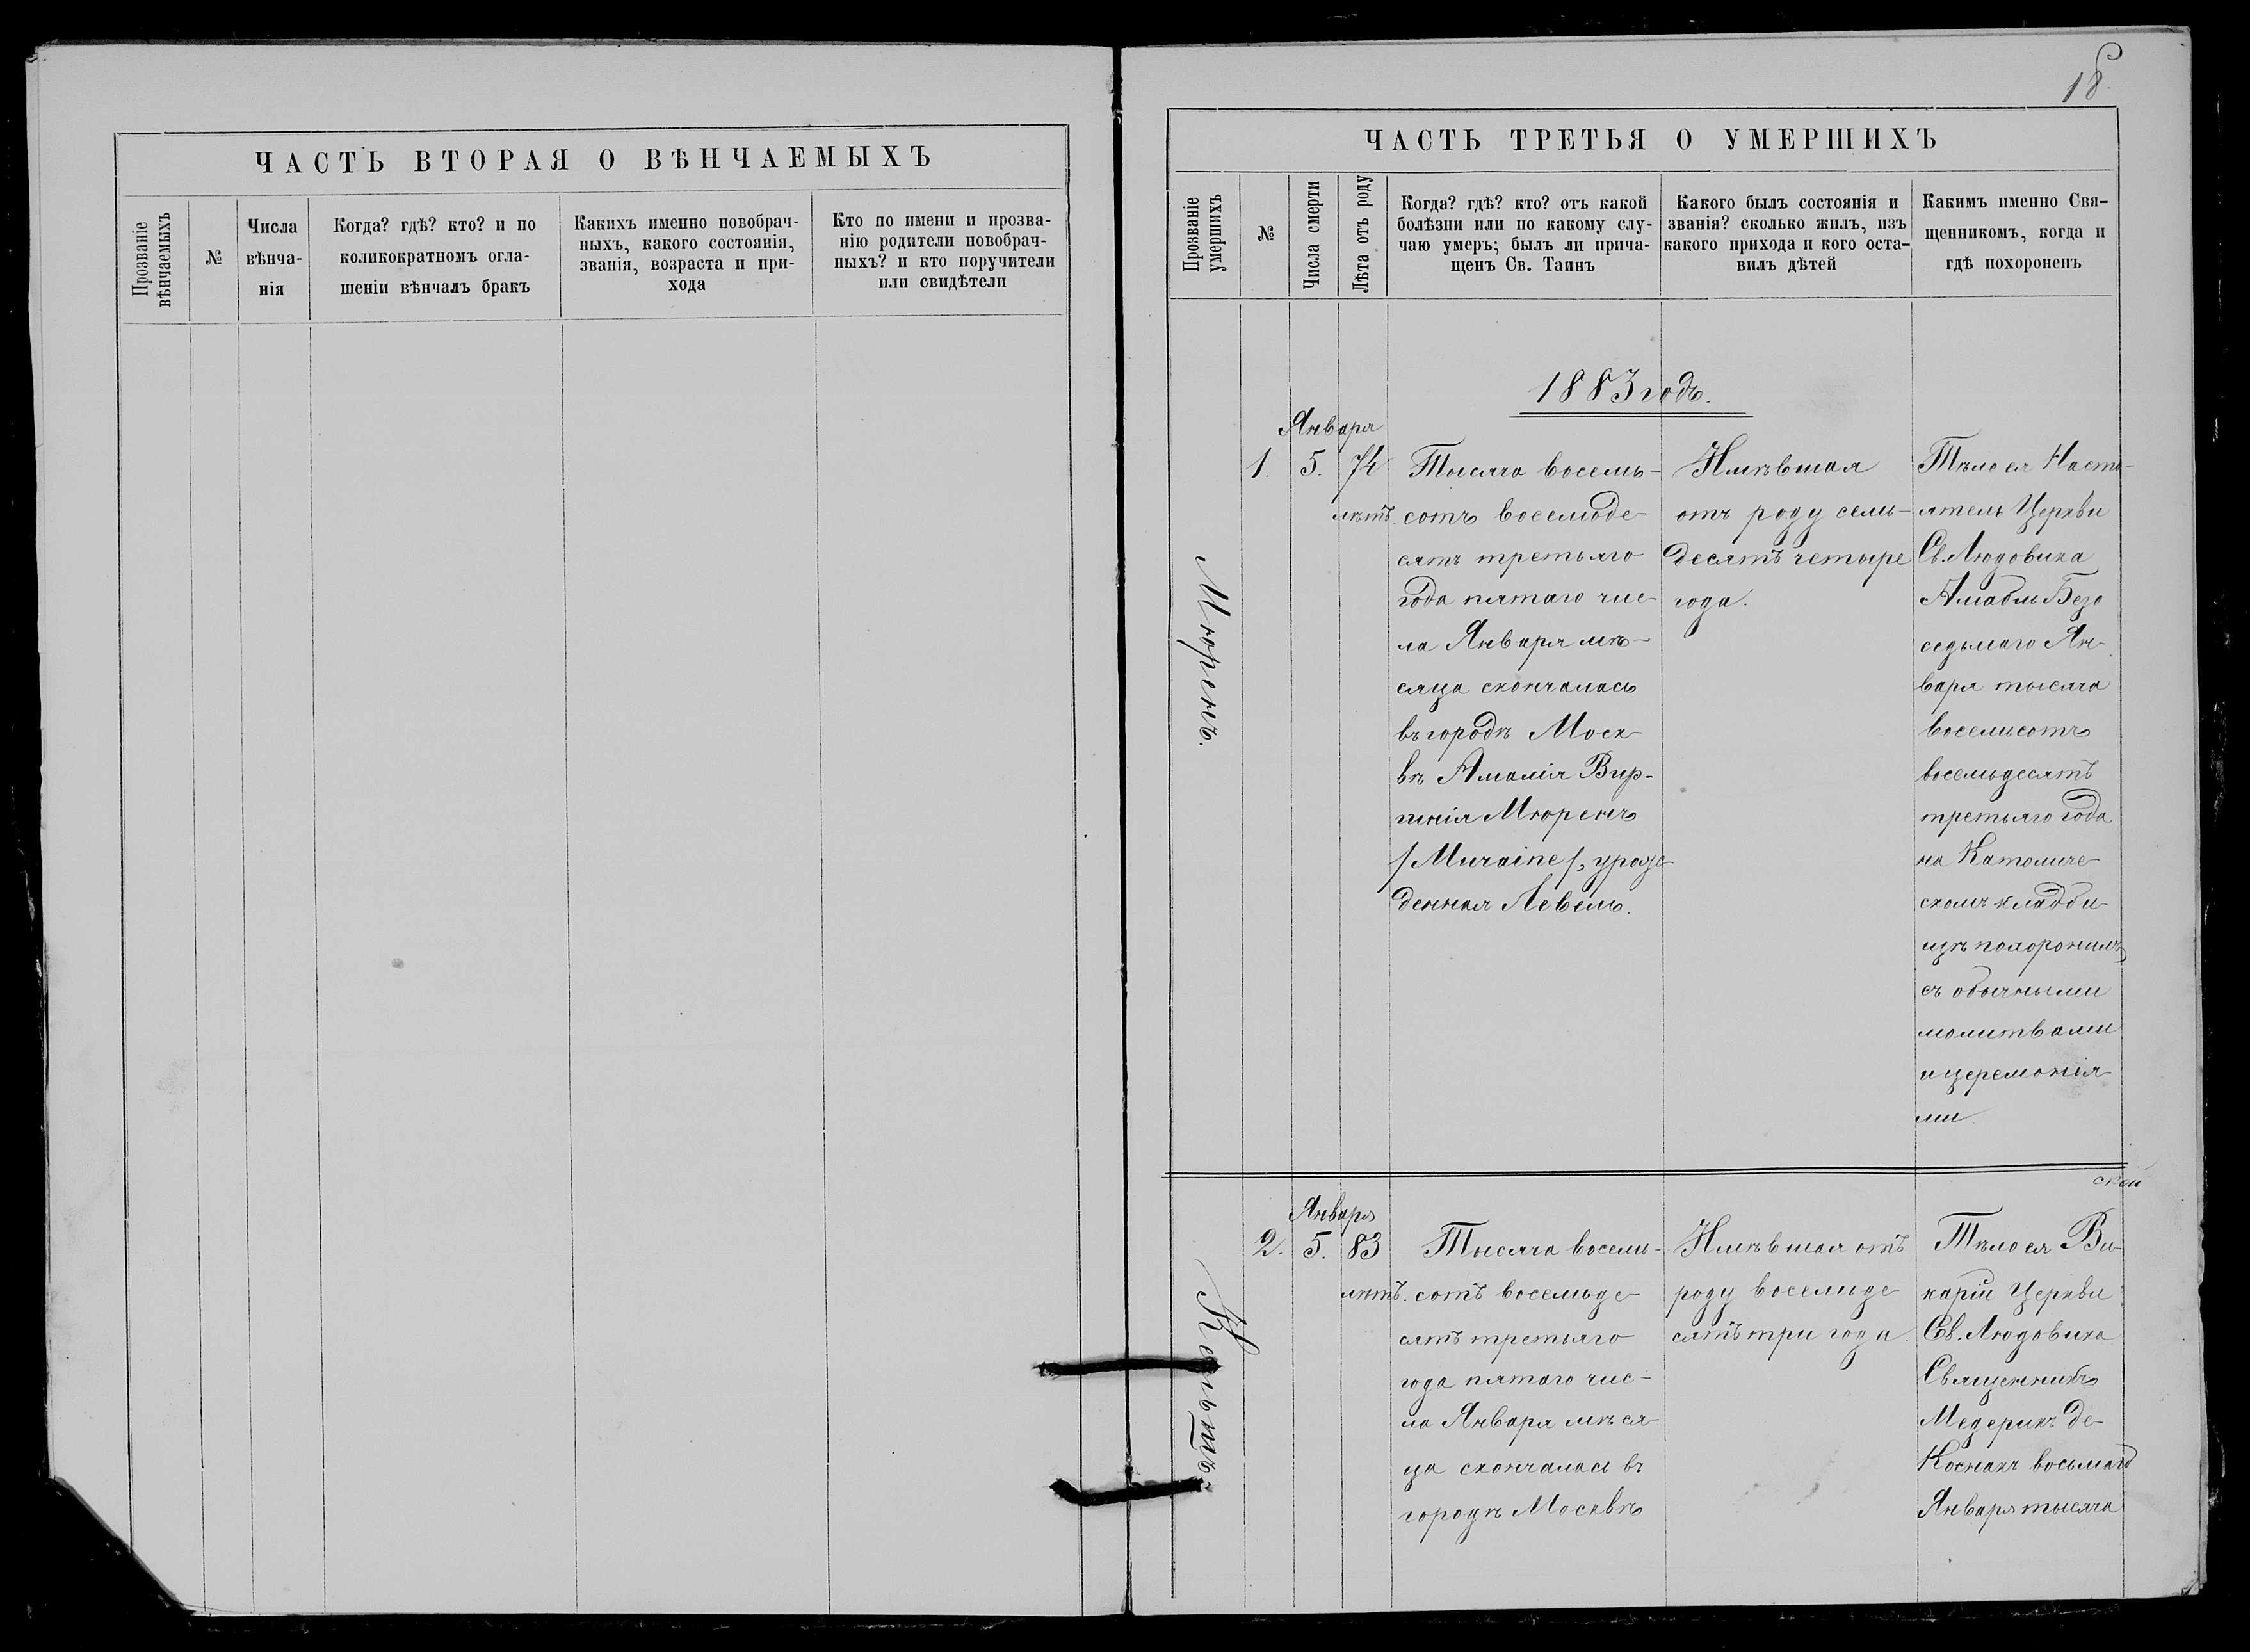 ЧАСТЬ ВТОРАЯ О ВѢНЧАЕМЫХЪ
Прозваніе
вѣнчаемыхъ
№
Числа
вѣнча-
нія
Когда? гдѣ? кто? и по
коликократномъ огла-
шеніи вѣнчалъ бракъ
Какихъ именно новобрач-
ныхъ, какого состоянія,
званія, возраста и при-
хода
Кто по имени и прозва-
нію родители новобрач-
ныхъ? и кто поручители
или свидѣтели
18
ЧАСТЬ ТРЕТЬЯ О УМЕРШИХЪ
Прозваніе
умершихъ
№
Числа смерти
Лѣта отъ роду
Когда? гдѣ? кто? отъ какой
болѣзни или по какому слу-
чаю умеръ; былъ ли прича-
щенъ Св. Таинъ
Какого былъ состоянія и
званія? сколько жилъ, изъ
какого прихода и кого оста-
вилъ дѣтей
Какимъ именно Свя-
щенникомъ, когда и
гдѣ похороненъ
1883 годъ.
Мюренъ.
1.
Января
5.
74
лѣтъ.
Тысяча восемь-
сотъ восемьде-
сятъ третьяго
года пятаго чис-
ла Января мѣ-
сяца скончалась
въ городѣ Моск-
вѣ Амалія Вир-
гинія Мюренъ
/Muraine/, урож-
денная Левель.
Имѣвшая
отъ роду семь-
десятъ четыре
года.
Тѣло ея Насто-
ятель Церкви
Св. Людовика
Амабль Безо
седьмаго Ян-
варя тысяча
восемьсотъ
восемьдесятъ
третьяго года
на Католиче-
скомъ кладби-
щѣ похоронилъ
съ обычными
молитвами
и церемонія-
ми.
2.
Января
5.
83
лѣтъ.
Тысяча восемь-
сотъ восемьде-
сятъ третьяго
года пятаго чис-
ла Января мѣся-
ца скончалась въ
городѣ Москвѣ
Имѣвшая отъ
роду восемьде-
сятъ три года.
Тѣло ея Ви-
карій Церкви
Св. Людовика
Священникъ
Медерикъ де-
Коснакъ восьмаго
Января тысяча